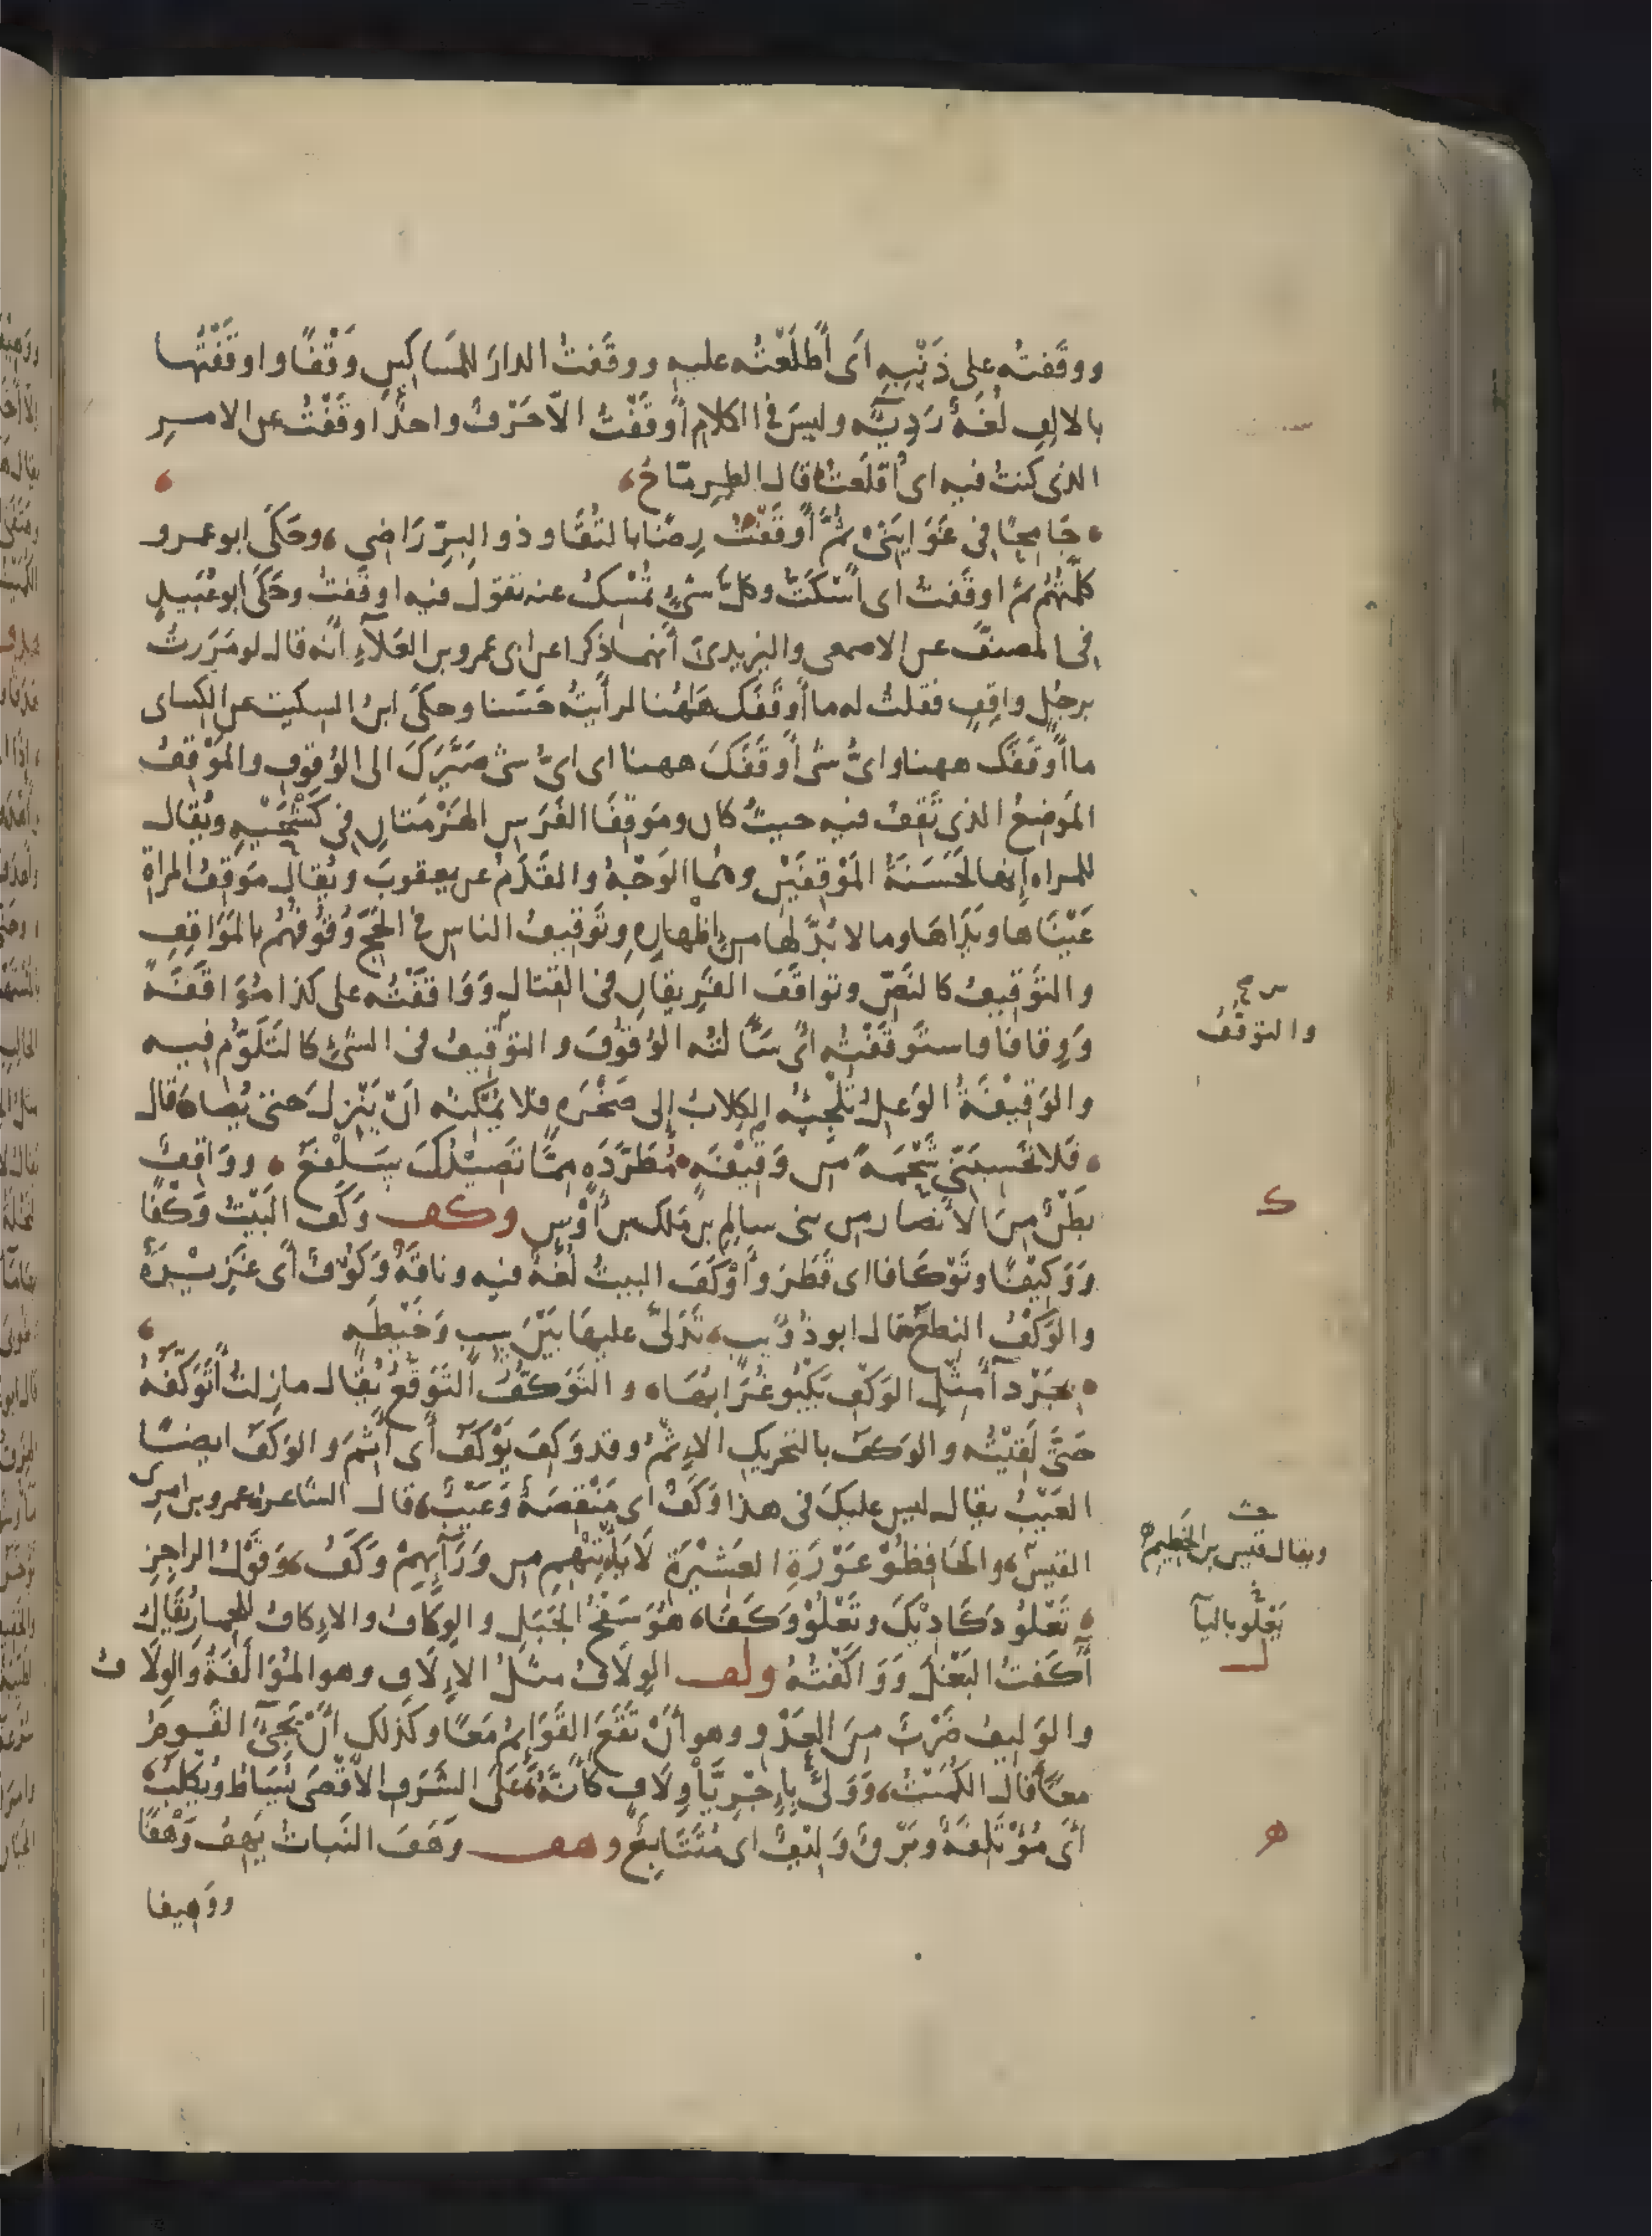 ووقَفتُه على ذَنْبِهِ اَى أَطلَعْتُه عليه ووقَفتُ الدارَ للمَساكينِ وَقْفًا واوقَفْتُها
بالالِفِ لُغَةٌ رَدِيَّه وليسَ فى الكلامِ أَوقَفْتُ الّا حَرْفٌ واحدٌ اوقَفْتُ عن الامر
الذى كنتُ فيه اى أَقلَعتُ قال الطِرِمّاحُ
جَامِحًا فى غَوَايَتى ثُمَّ أَوقَفْتُ رِضًا بالتُقَا وذو البِرِّ رَاضِى وحَكَى ابو عمرو
كلَّمتُهُم ثم اوقَفتُ اى أَسْكَتُّ وكلُّ شىءٍ تُمْسِكُ عنه تقول فيه اوقَفتُ وحَكَى ابو عُبَيدٍ
فى المصنَّف عن الاصمعى واليزيدىّ أنهما ذكرا عن ابى عمرو بن العَلآءِ انَّه قال لو مَرَرتُ
برجُلٍ واقِفٍ فقلتُ له ما أَوقَفَكَ هَاهُنا لرأَيتُه حَسَنا وحكَى ابنُ السكيت عن الكساى
ما أَوقَفَكَ ههنا واىُّ شى أَوقَفَكَ ههنا اى اىُّ شى صَيَّرَكَ الى الوُقوفِ والمَوْقِفُ
المَوضِعُ الذى تَقِفُ فيه حيثُ كان ومَوقِفَا الفَرَسِ الهَزْمَتانِ فى كَشْحَيْهِ ويُقال
للمراه إنها لَحَسَنَةُ المَوْقِفَيْنِ وهُما الوَجْهُ والقَدَمُ عن يعقوبَ ويُقال مَوقِفُ المراة
عَيْنَاها ويَدَاهَا وما لا بُدَّ لها من إظهارِهِ وتَوقِيفُ الناسِ فى الحَجِّ وُقُوفُهُم بالمَوَاقِفِ
والتَوقِيفُ كالنَصِّ وتواقَفَ الفَرِيقَانِ فى القتال ووَاقَفْتُه على كذا مُوَاقَفَةً
ووِقافًا واستَوقَفْتُه اَى سَأَلتُه الوُقُوفَ والتوْقِيفُ فى الشىءِ كالتَلَوُّمِ فيه
والوَقِيْفَةُ الوَعِلُ تُلْجِئُه الكِلابُ إلى صَخْرَهِ فلا يُمكِنُه انْ يَنْزِلَ حتى يُصادَ قال
فَلا تَحْسِبَنّى شَحْمَةً من وَقِيْفَهٍ مُطَرَّدَهٍ مِمَّا تَصِيْدُكَ سَلْفَعُ ووَاقِفٌ
بَطْنٌ مِنَ الأَنصَار من بنى سالِمِ بن مَلك بن أَوْسٍ وكف وَكَفَ البَيْتُ وَكْفًا
ووَكِيْفًا وتَوْكَافا اى قَطَرَ وأَوْكَفَ البيتُ لُغَةٌ فيه وناقَةٌ وَكُوْفٌ أَى غَزِيْرَةٌ
والوَكْفُ النِطعُ قال ابو ذُوَيبٍ تَدَلّى عليها بَيْنَ سِبٍّ وَخَيْطَهٍ
بِجَرْدآءَ مِثْلِ الوَكْفِ يَكْبُو غُرَابُهَا والتَوَكُّفُ التَوَقُّعُ يُقال مازلتُ أَتَوَكَّفُهُ
حَتَّى لَقِيْتُه والوَكَفُ بالتحريكِ الإِثْمُ وقد وَكِفَ يَوْكَفُ أَى أَثِمَ والوَكَفُ ايضًا
العَيْبُ يقال ليس عليكَ فى هذا وَكَفٌ اى مَنْقَصَةٌ وَعَيْبٌ قال الشاعر عمرو بن امرئ
القيس والحَافِظُوْ عَوْرَةِ العَشِيْرَةِ لَا يَأْتِيْهِم من وَرَآئِهِمْ وَكَفُ وَقَوْلُ الراجِز
تَعْلُو دَكَادِيْكَ وتَعْلُوْ وَكَفَا هُوَ سَفْحُ الجَبَلِ والوِكَافُ والاِكافُ للحمار يُقالُ
آكَفتُ البَغْلَ وَوَاكَفْتُهُ ولف الوِلَافُ مثلُ الإِلَافِ وهو المُوَالَفَةُ والوِلَافُ
والوَلِيفُ ضَرْبٌ مِنَ العَدْوِ وهو أَنْ تَقَعَ القَوَائِمُ مَعًا وكَذلك أَنْ يَجِىَّ القَومُ
معًا قال الكُمَيْتُ وَوَلّى بإِجْرِيَّا وِلَافٍ كَأَنَّهُ عَلَى الشَرَفِ الاَقْصَى يُسَاطُ ويُكلَبُ
أَى مُؤْتَلِفَةٌ وبَرْقٌ وَلِيْفٌ اى مُتَتَابِعٌ وهف وَهَفَ النَباتُ يَهِفُ وَهْفًا
ووَهِيفا
والتوقُّفُ
ك
ويقال قيس بن الخَطِيم
يَعْلُو باليآ
ل
ه